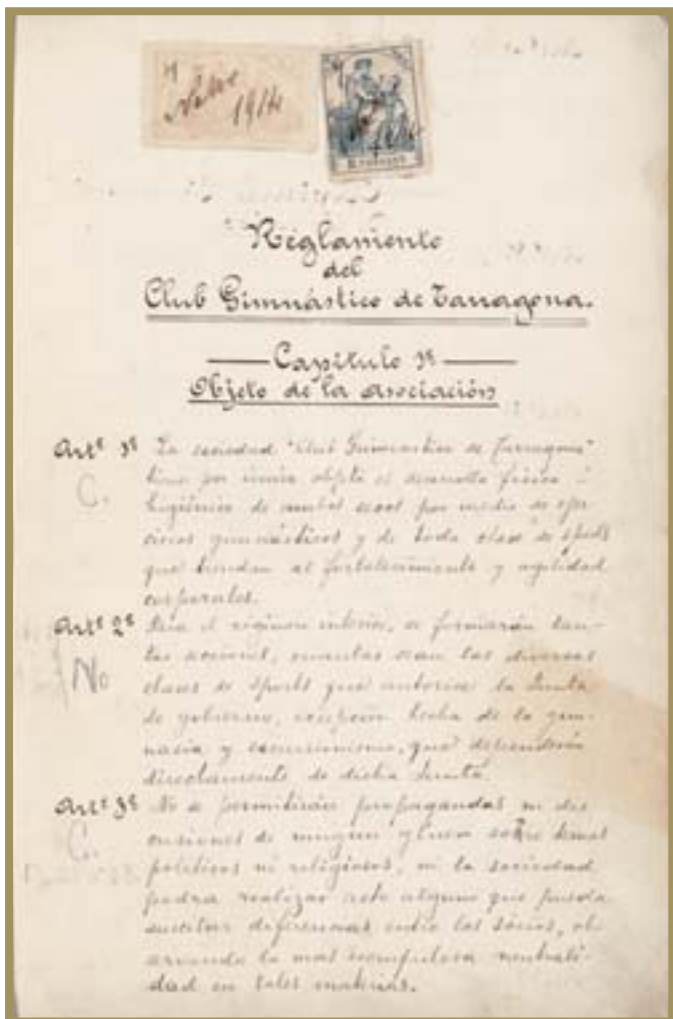 1914
Reglamento
del
Club Gimnástico de Tarragona.
Capítulo 1º
Objeto de la asociación
Artº 1º La sociedad "Club Gimnastico de Tarragona"
tiene por único objeto el desarrollo físico é
higiénico de ambos sexos por medio de ejer-
cicios gimnásticos y de toda clase de sports
que tiendan al fortalecimiento y agilidad
corporales.
C.
Artº 2º Para el régimen interior, se formarán tan-
tas secciones, cuantas sean las diversas
clases de sports que autorice la Junta
de gobierno, excepción hecha de la gim-
nasia y excursionismo, que dependerán
directamente de dicha Junta.
No
Artº 3º No se permitirán propagandas ni dis-
cusiones de ningun género sobre temas
políticos ni religiosos, ni la sociedad
podrá realizar acto alguno que pueda
suscitar diferencias entre los socios, ob-
servando la mas escrupulosa neutrali-
dad en tales materias.
C.